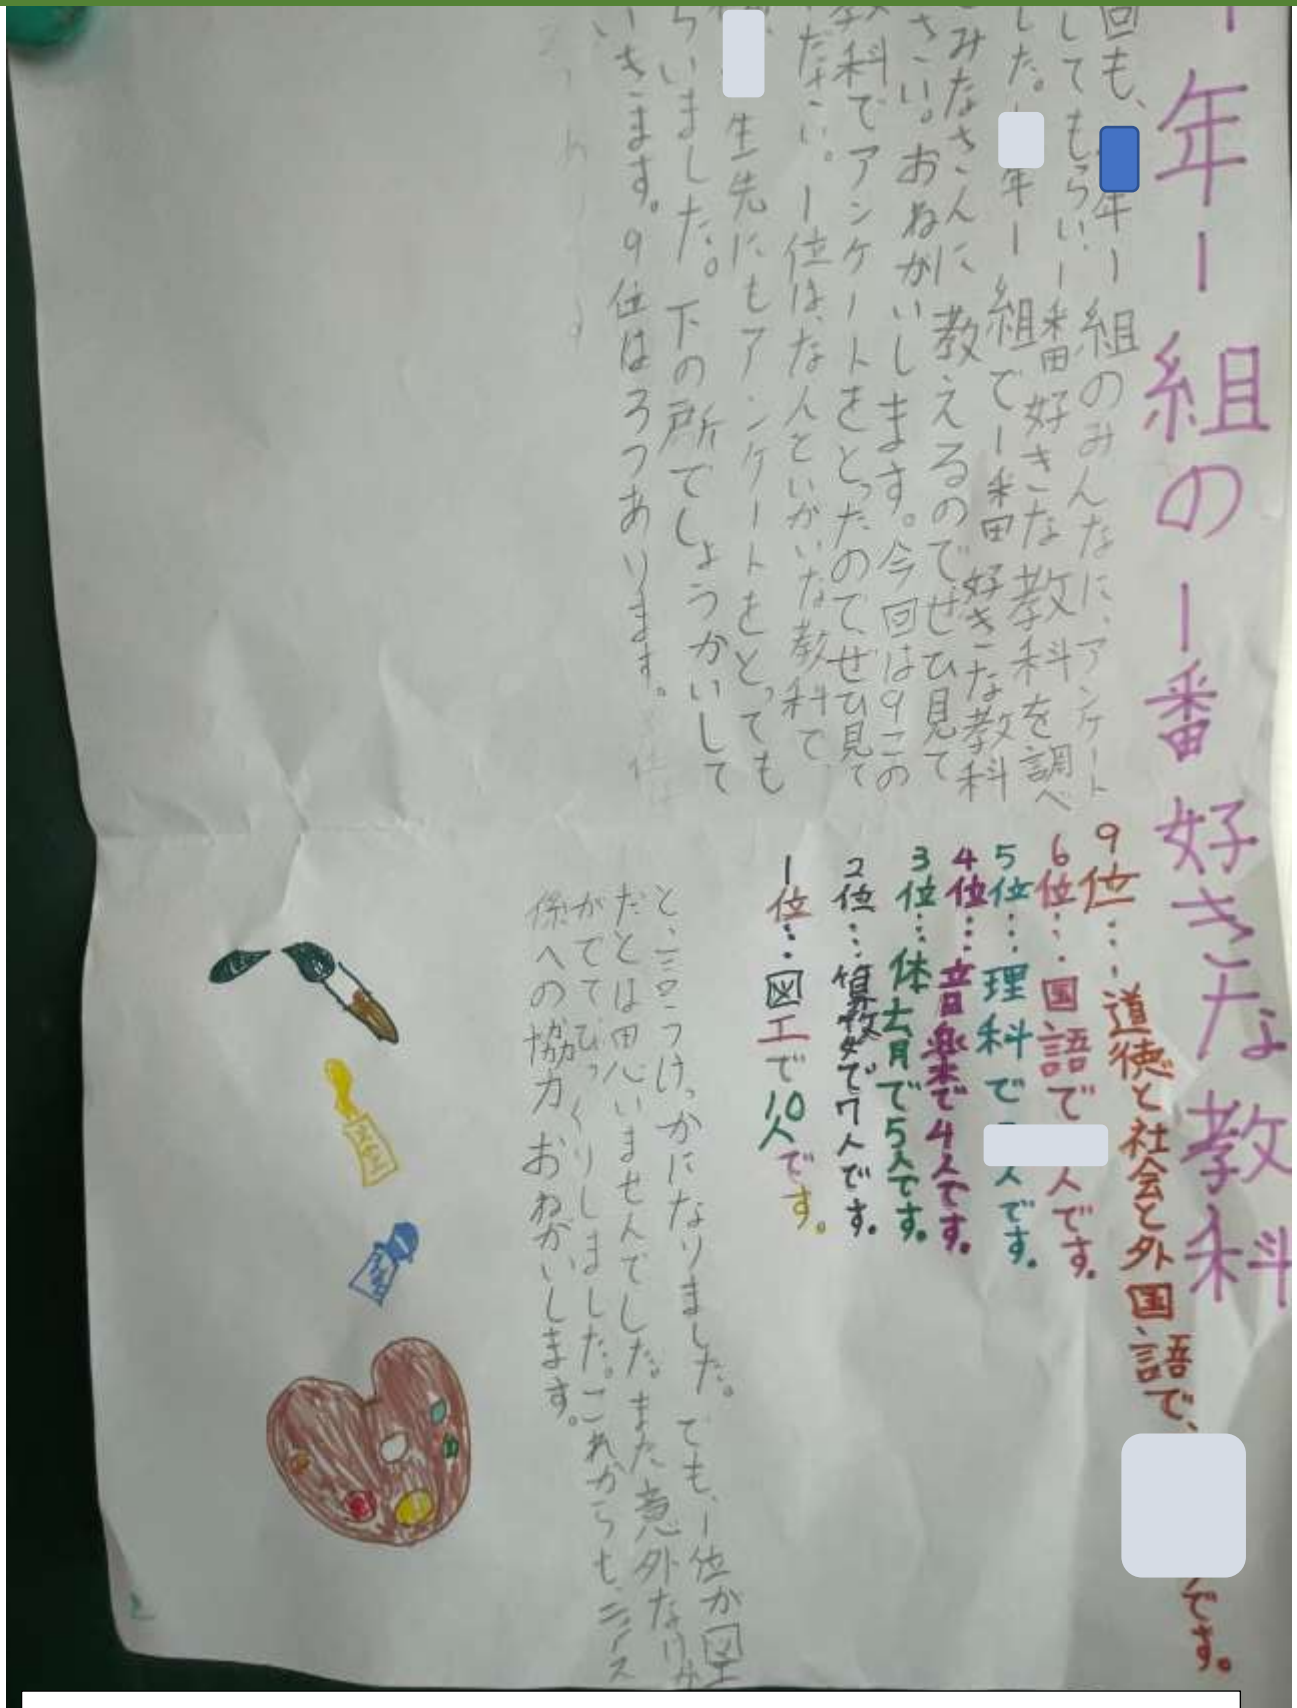 年一組の一番好きな教科
回も、年一組のみんなに、アンケート
してもらい一番好きな教科を調べ
した。年一組で一番好きな教科
みなさんに教えるのでぜひ見て
さい。おねがいします。今回は9この
教科でアンケートをとったので、ぜひ見て
ださい。1位は、な人といがいな教科で、
生先にもアンケートをとっても
らいました。下の所でしょうかいして
いきます。9位は3つあります。
9位…道徳と社会と外国語で、です。
6位…国語で人です。
5位…理科で人です。
4位…音楽で4人です。
3位…体育で5人です。
2位…算数で7人です。
1位…図工で10人です。
と、言うけっかになりました。でも、1位が図工
だとは思いませんでした。また意外な
がでてびっくりしました。これからも、ニュース
係への協力おねがいします。